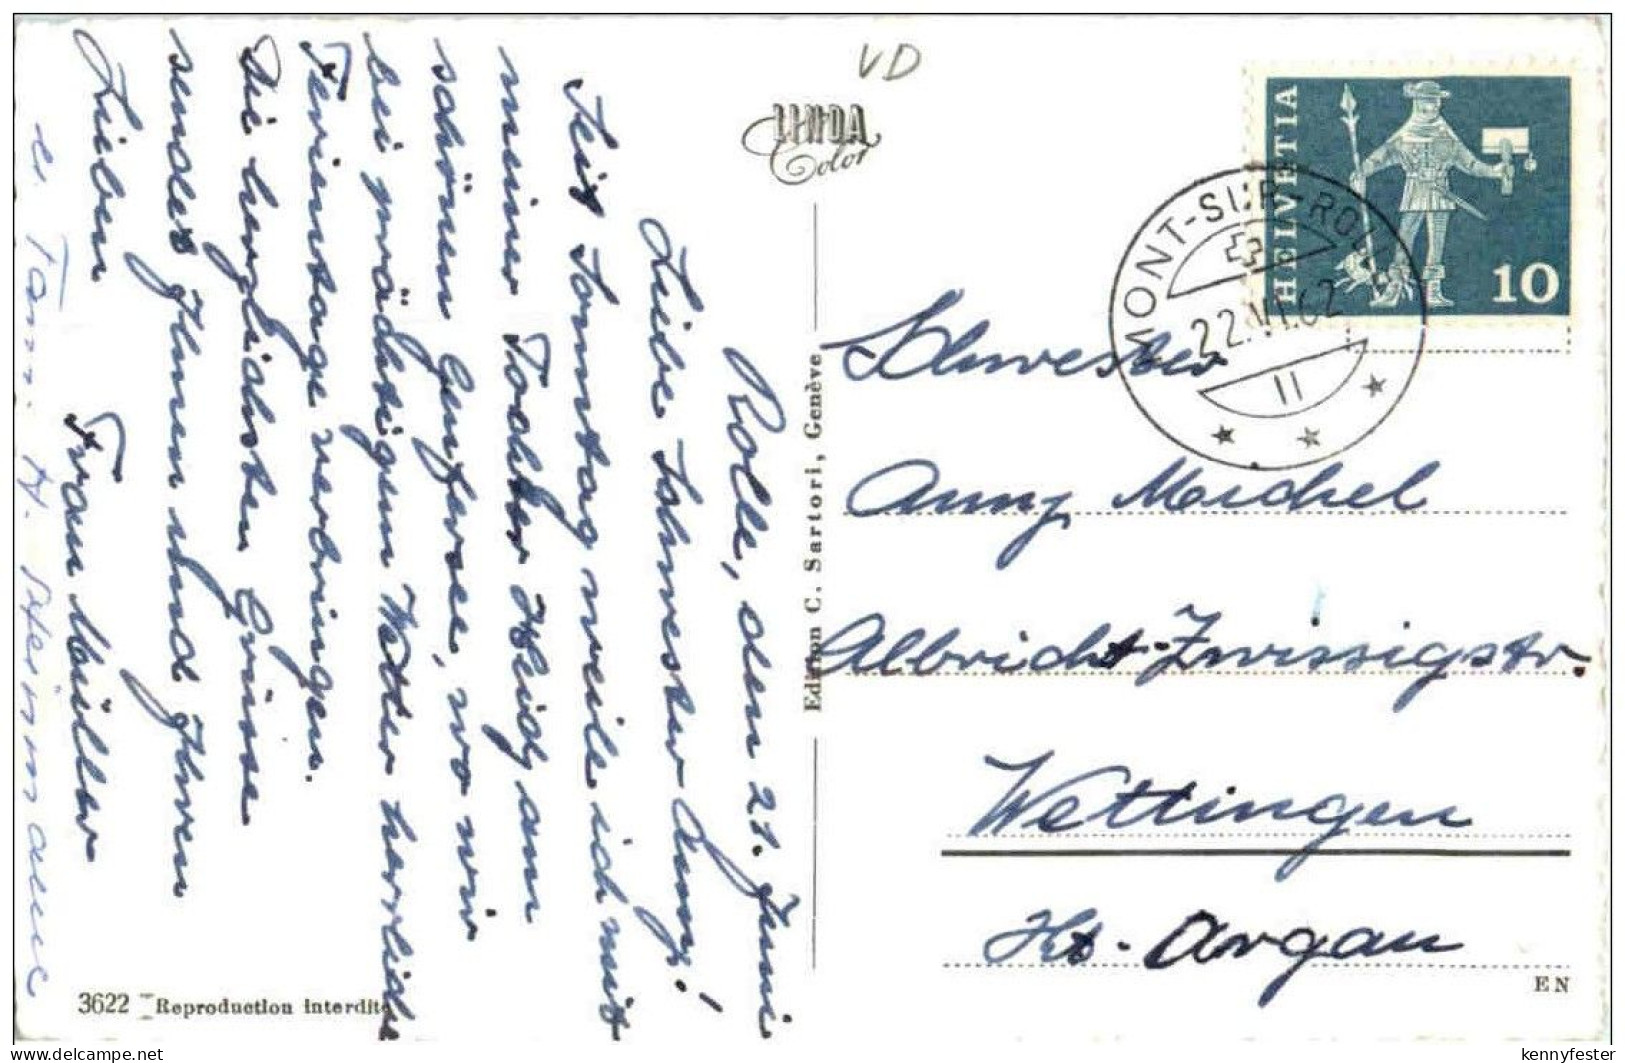 VD
LINDA
Color
HELVETIA
10
MONT-SUR-ROLLE
22.VI.62
11
Rolle, den 21. Juni
Liebe Schwester Anny!
Seit Sonntag weile ich mit
meiner Tochter Heidy am
schönen Genfersee, wo wir
bei prächtigem Wetter herrliche
Ferientage verbringen.
Die herzlichsten Grüsse
sendet Ihnen und Ihren
Lieben
Frau Müller
Edition C. Sartori, Genève
Schwester
Anny Meichel
Albricht-Zwissigstr.
Wettingen
Kt. Argau
3622 Reproduction interdite
EN
delcampe.net
kennyfester